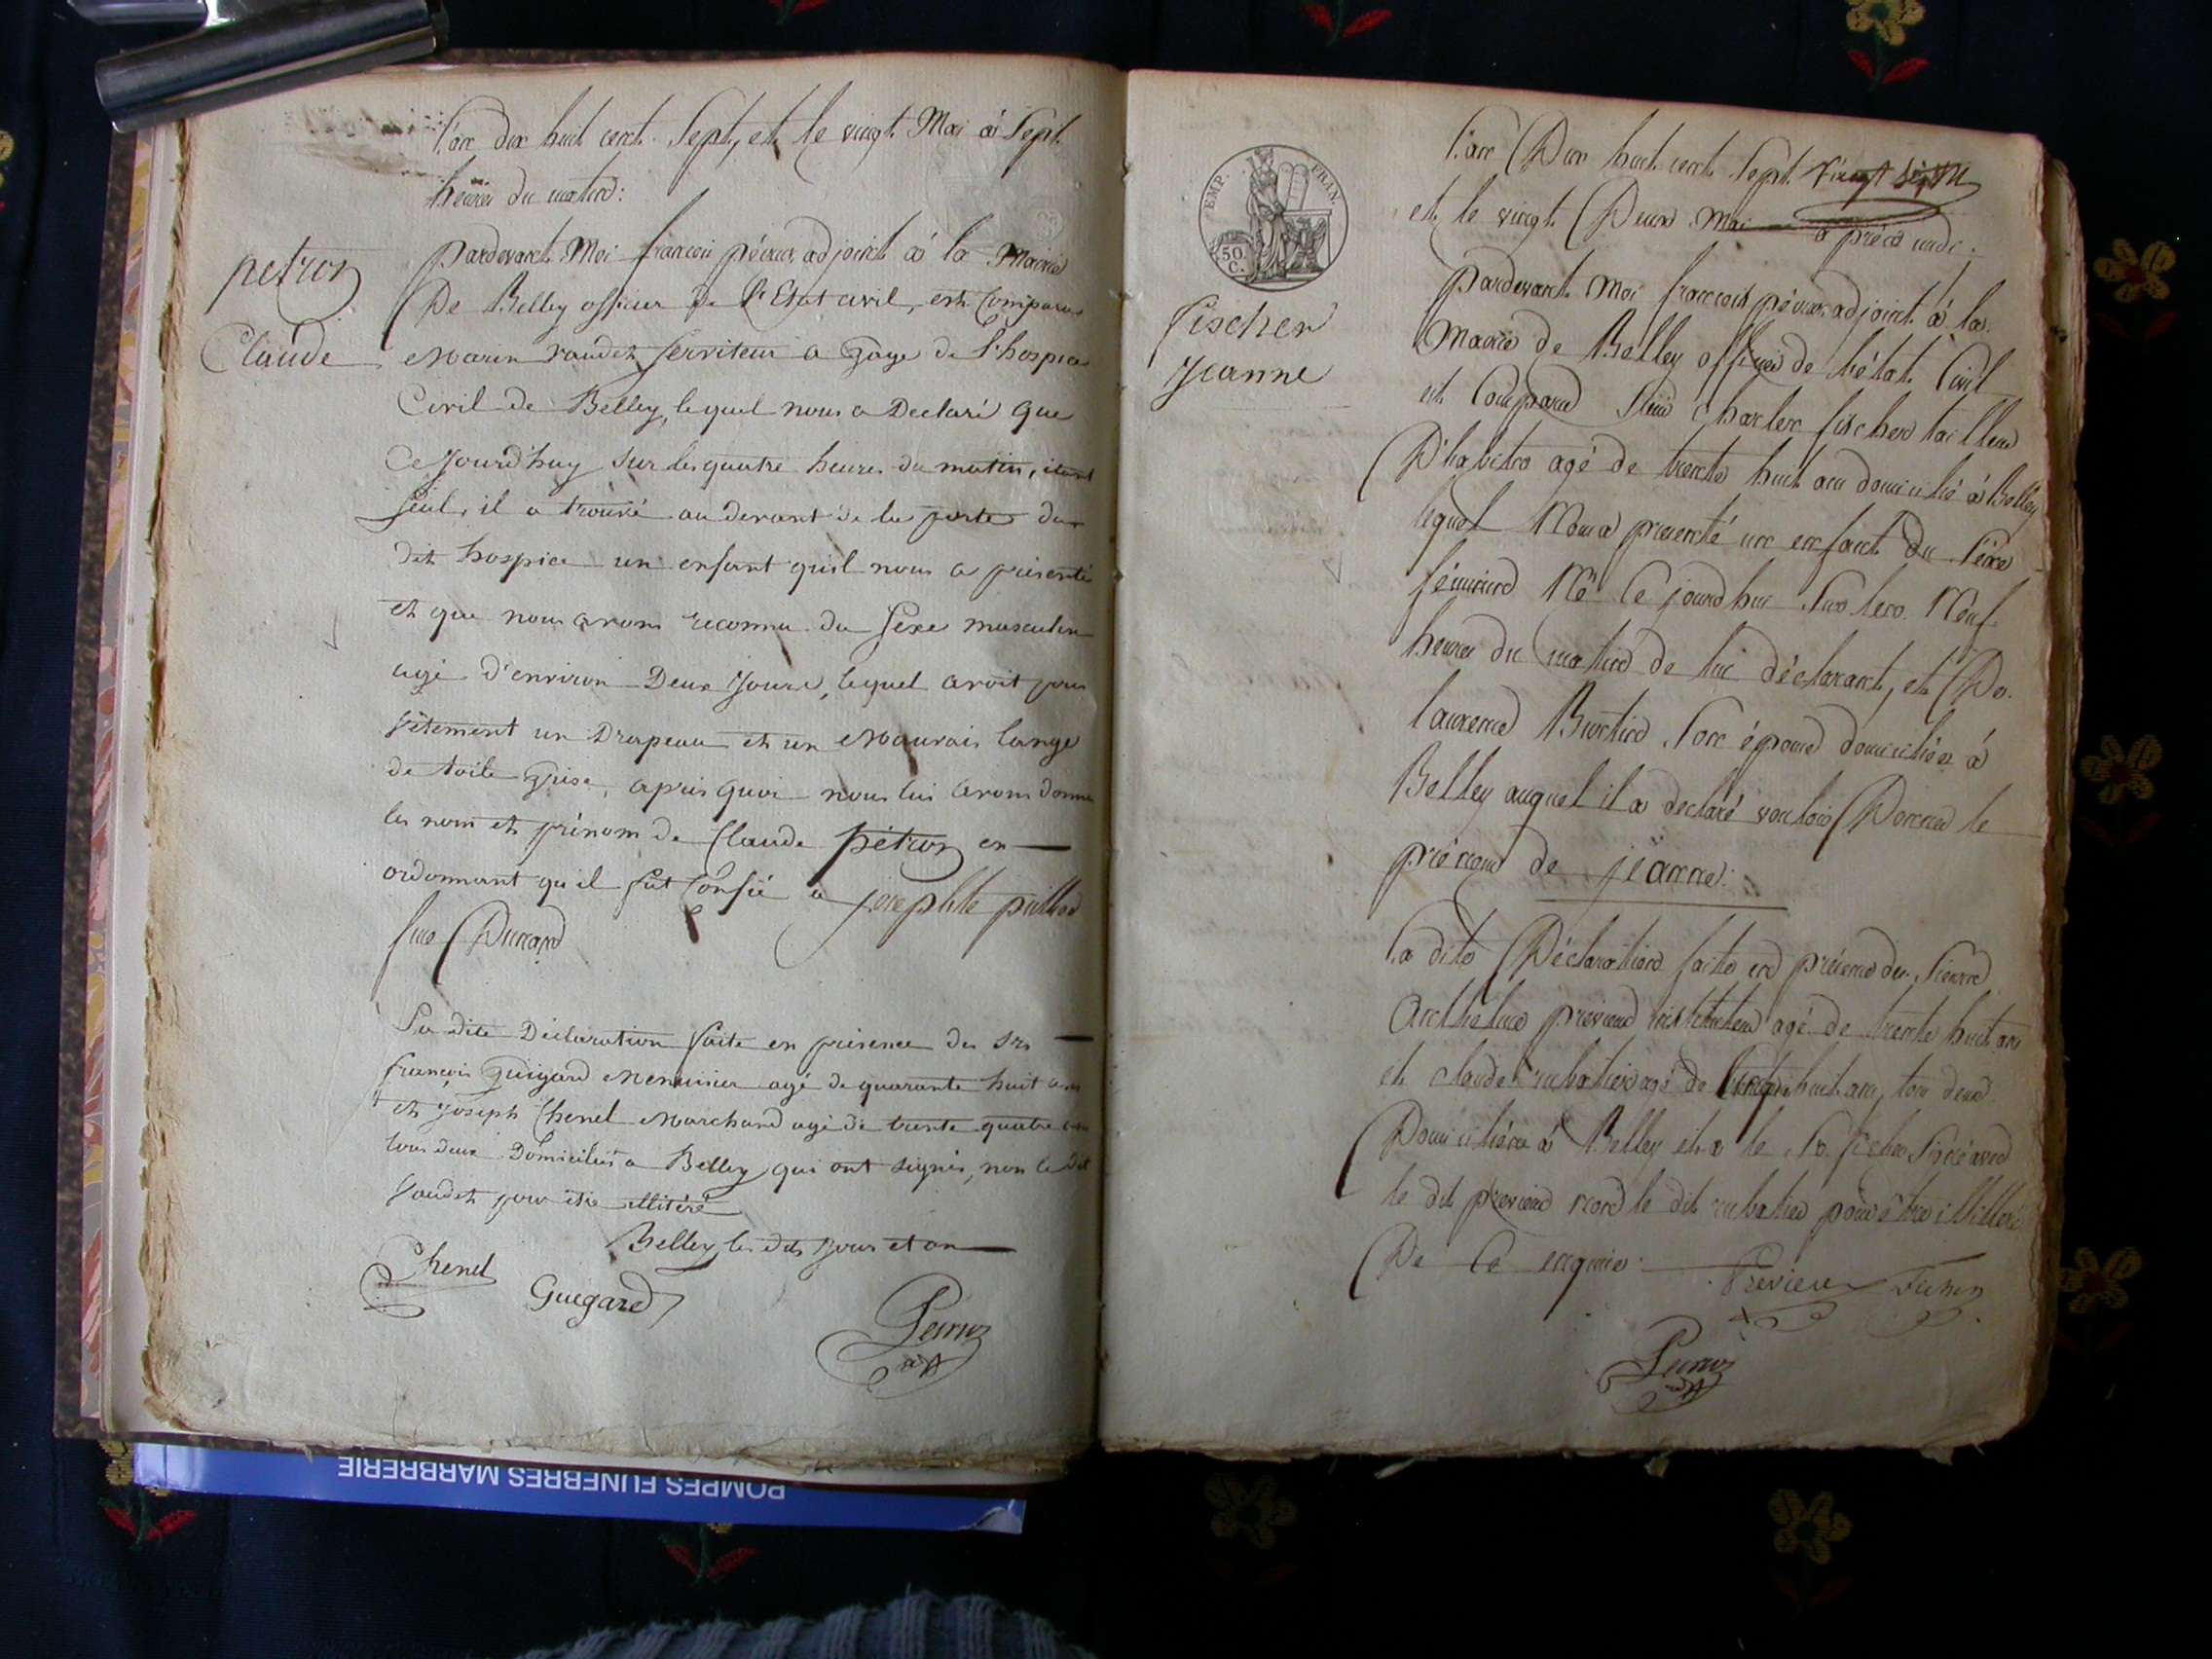 L'an dix huit cent Sept, et le vingt Mai à Sept
heures du matin:
petron
Claude
pardevant Moi francois péirus, adjoint à la Mairie
De Belley officier De l'Etat civil, est Comparu
Marin vaudet serviteur a Gage de l'hospice
Civil de Belley, lequel nous a Declaré que
Ce Jourd'huy sur les quatre heures du matin, étant
seul, il a trouvé au devant de la porte du
dit hospice un enfant qu'il nous a présenté
et que nous avons reconnu du sexe masculin
agé d'environ Deux Jours, lequel avoit pour
vêtement un Drapeau et un Mauvais lange
de toile Grise, après quoi nous lui avons donné
les nom et prénom de Claude pétron en
ordonnant qu'il fût Confié a josephte
Durand
La dite Déclaration faite en présence des Srs
francois Guigard Menuisier agé de quarante huit ans
et Joseph Chenel Marchand agé de trente quatre ans
tous deux Domiciliés a Belley qui ont signés, non le dit
vaudet pour être illitéré
Belley les dits Jour et an
Chenel
Guigard
EMP. FRAN.
50. C.
fischer
Jeanne
L'an Dix huit cent Sept
et le vingt Deux Mai à
pardevant Moi francois péirus adjoint à la
Mairie de Belley officier de l'état Civil
est Comparu Sieur Charles fischer tailleur
D'habits agé de trente huit ans domicilié à Belley
lequel Nous a présenté un enfant du Sexe
féminin Né Ce jourd'hui Sur les Neuf
heures du matin de lui déclarant, et De
laurence son épouse domiciliés à
Belley auquel il a déclaré vouloir Donner le
prénom de jeanne:
La dite Déclaration faite en présence des Sieurs
previeux instituteur agé de trente huit ans
et claude rubatier agé de huit ans, tous deux
Domiciliés à Belley et a le Sr. fischer Signé avec
le dit previeux non le dit rubatier pour être illitéré
De Ce enquis.
Previeux
POMPES FUNEBRES MARBRERIE